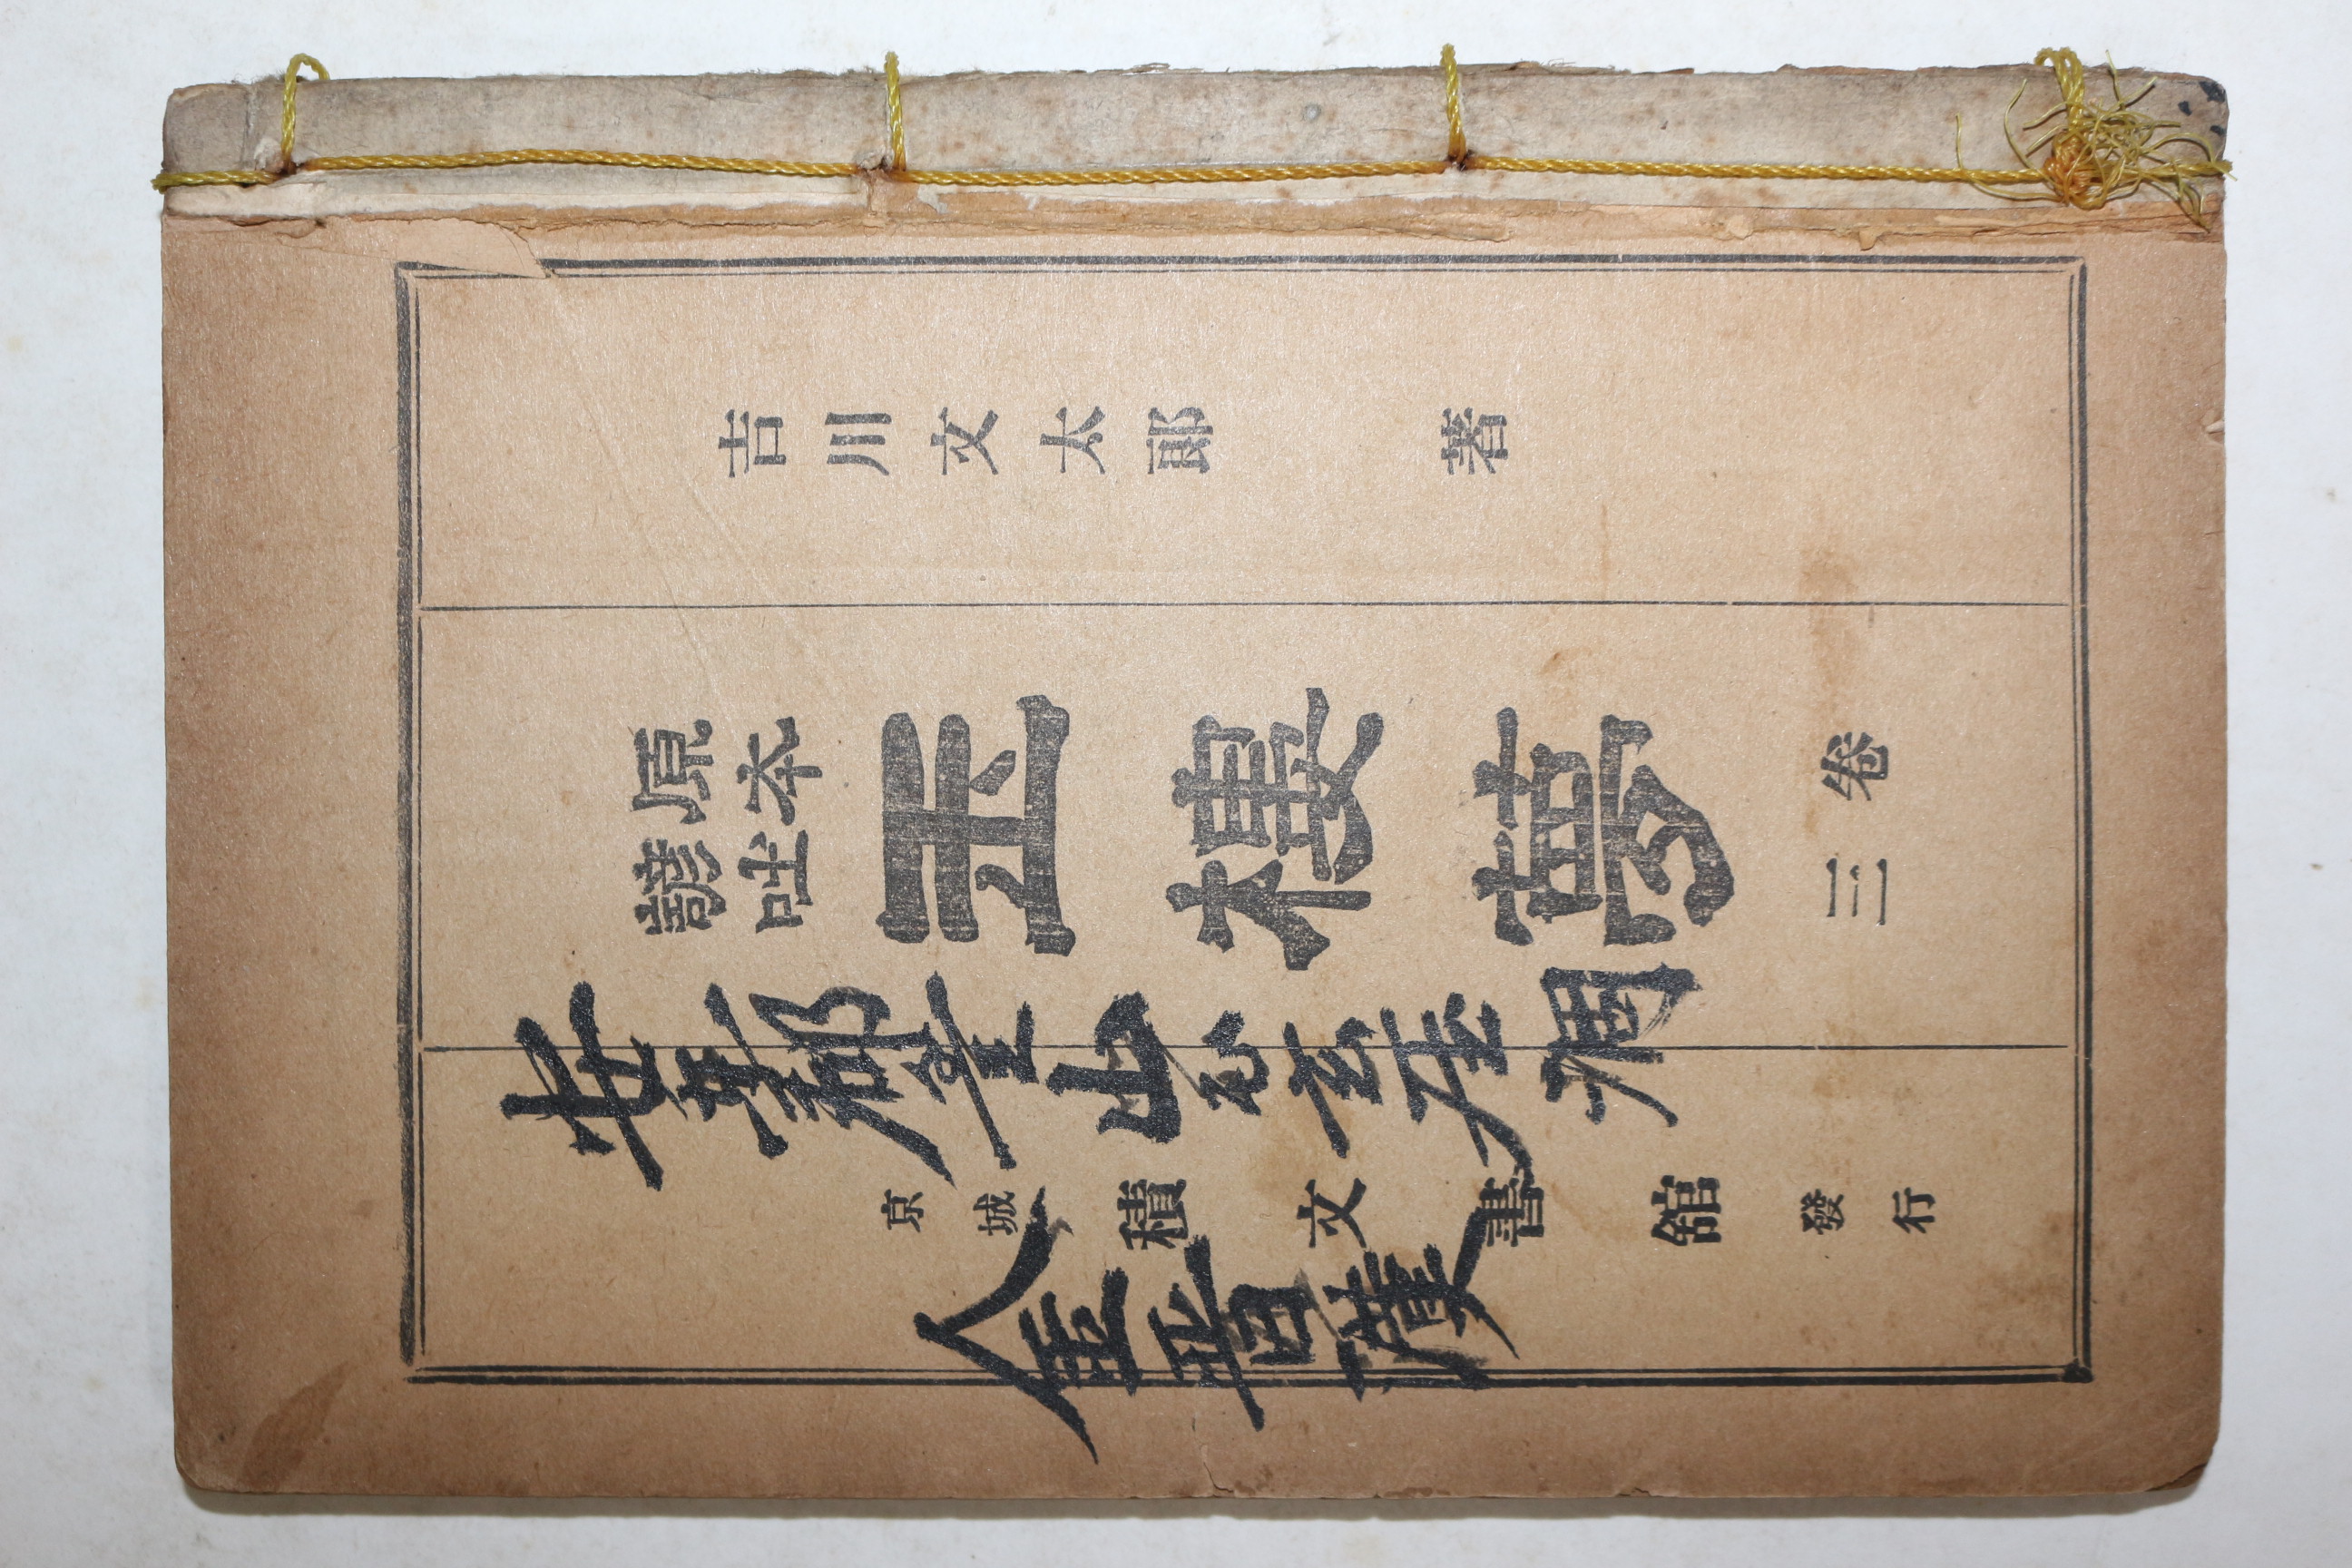 吉川文太郎 著
原本
諺吐
玉樓夢
卷
三
安東郡 山 玄厓洞
京城 積文書舘 發行
金晋漢